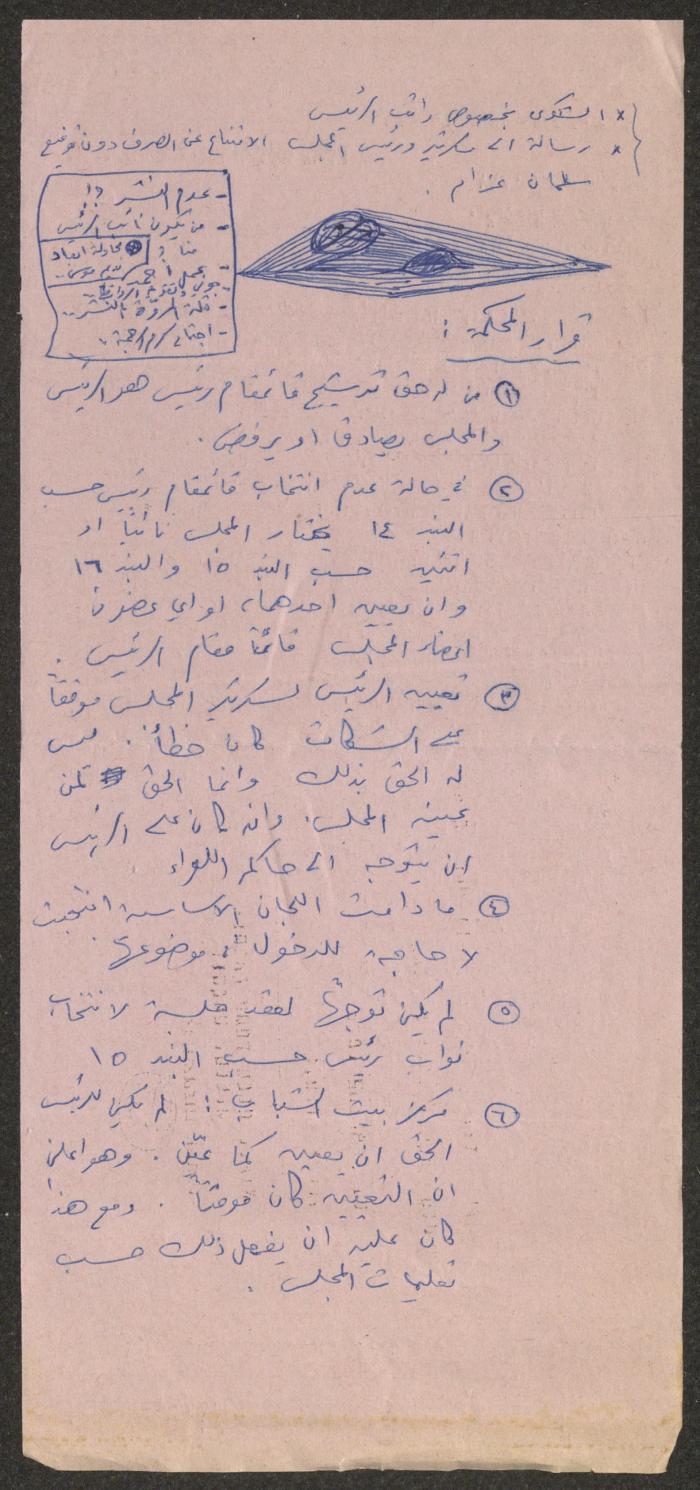 * الشكوى بخصوص راتب الرئيس
* رسالة الى سكرتير ورئيس المجلس الامتناع عن الصرف دون توقيع
سلمان عزام .
- عدم النشر ؟!
- من يكون نائب الرئيس
منا ؟
محاولة ابعاد
- قلة النشر ..
- اجتماع
قرار المحكمة :
① من له حق ترشيح قائمقام رئيس هو الرئيس
والمجلس يصادق او يرفض .
② في حالة عدم انتخاب قائمقام رئيس حسب
البند ١٤ يختار المجلس نائباً او
اثنين حسب البند ١٥ والبند ١٦
وان يعين احدهما، او اي عضو من
اعضاء المجلس قائماً مقام الرئيس .
③ تعيين الرئيس لسكرتير المجلس موقعاً
على الشكات كان خطأً . ليس
له الحق بذلك وانما الحق لمن
عينه المجلس . وانه كان على الرئيس
ان يتوجه الى حاكم اللواء
④ ما دامت اللجان الاساسية انتخبت
لا حاجة للدخول بموضوعها
⑤ لم يكن توجهاً لعقد جلسة لانتخاب
نواب رئيس حسب البند ١٥
⑥ مركز بيت الشباب : لم يكن للرئيس
الحق ان يعين كما عيّن . وهو اعلن
ان التعيين كان موقتاً . ومع هذا
كان عليه ان يفعل ذلك حسب
تعليمات المجلس .